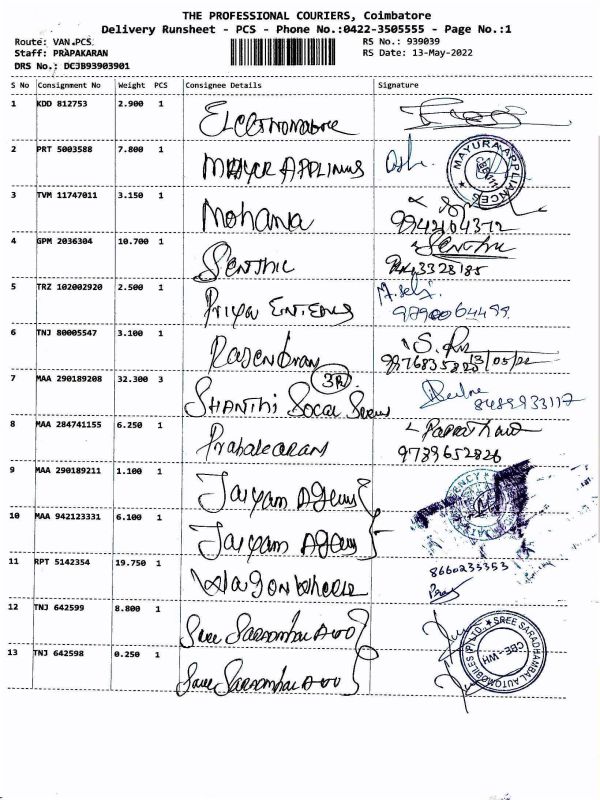 THE PROFESSIONAL COURIERS, Coimbatore
Delivery Runsheet - PCS - Phone No.:0422-3505555 - Page No.:1
Route: VAN.PCS RS No.: 939039
Staff: PRAPAKARAN RS Date: 13-May-2022
DRS No.: DCJB93903901
S No Consignment No Weight PCS Consignee Details Signature
1 KDD 812753 2.900 1
2 PRT 5003588 7.800 1 MAYURA APPLIANCES
3 TVM 11747011 3.150 1 Mohana 9942164372
4 GPM 2036304 10.700 1 SENTHIL Senthil 3328185
5 TRZ 102002920 2.500 1 Priya M. Selvi
6 TNJ 80005547 3.100 1 Rajendran 13/05/22
7 MAA 290189208 32.300 3 SHANTHI SOCAL 8489933117
8 MAA 284741155 6.250 1 Prabakaran 9789652826
9 MAA 290189211 1.100 1 Jaiyam Agency
10 MAA 942123331 6.100 1 Jaiyam Agency
11 RPT 5142354 19.750 1 Wagon Wheels 8660233353
12 TNJ 642599 8.800 1 Sree
13 TNJ 642598 0.250 1 SREE SARADHAMBAL AUTOMOBILES (P) LTD. CBE-WH